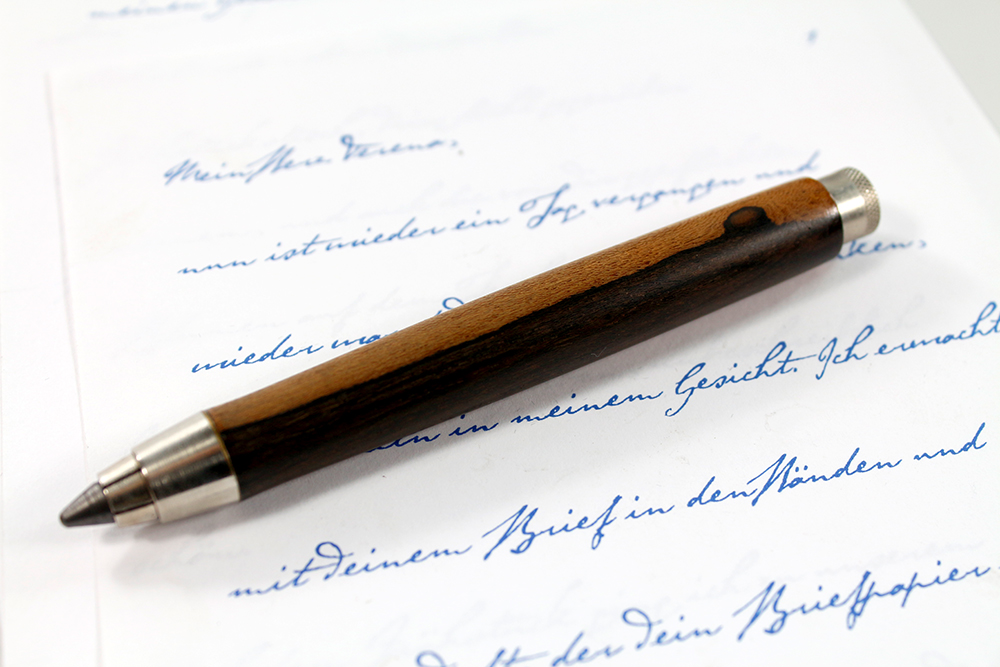 meinen
Meine Verena,
nun ist wieder ein Tag vergangen und
wieder
in meinem Gesicht. Ich erwacht
mit deinem Brief in den Händen und
der dein Briefpapier